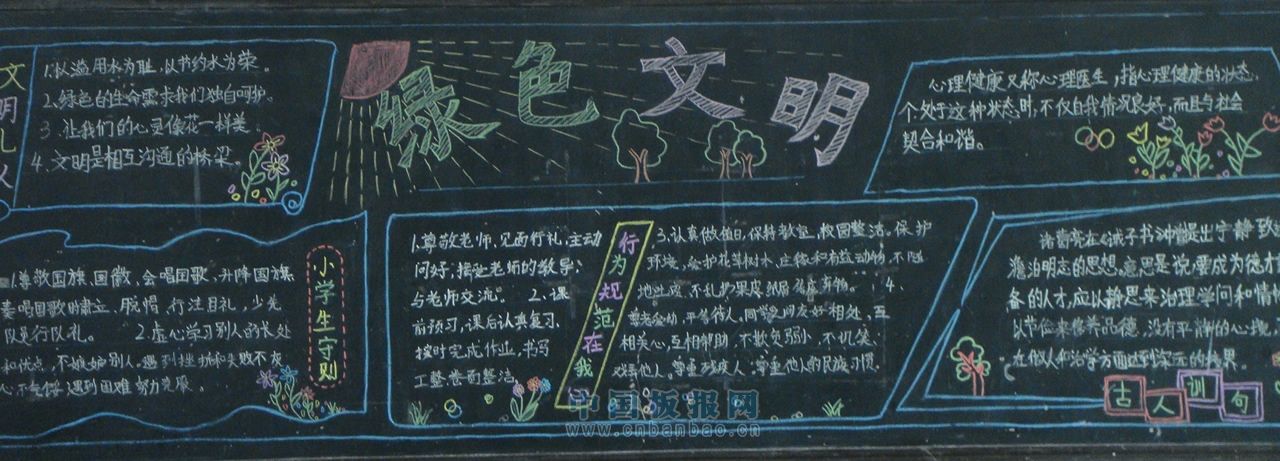 绿色文明
文明礼仪
1.以滥用水为耻,以节约水为荣。
2.绿色的生命需求我们独自呵护。
3.让我们的心灵像花一样美
4.文明是相互沟通的桥梁。
心理健康又称心理医生,指心理健康的状态,
个处于这种状态时,不仅自我情况良好,而且与社会
契合和谐。
小学生守则
1尊敬国旗、国徽,会唱国歌,升降国旗
奏唱国歌时肃立、脱帽、行注目礼,少先
队员行队礼。 2.虚心学习别人的长处
和优点,不嫉妒别人。遇到挫折和失败不灰
心,不 遇到困难努力克服。
行为规范在我
1.尊敬老师,见面行礼,主动
问好,接受老师的教导,
与老师交流。 2.课
前预习,课后认真复习,
按时完成作业,书写
工整卷面整洁。
3.认真做值日,保持教室、校园整洁。保护
环境,爱护花草树木、庄稼和有益动物,不随
地吐痰,不乱扔果皮纸屑 弃物。 4.
平等待人,同学之间友好相处,互
相关心,互相帮助。不欺负弱小,不讥笑、
戏弄他人。尊重残疾人。尊重他人的民族习惯。
诸葛亮在《诫子书》中曾提出宁静致
澹泊明志的思想。意思是说,要成为德才
备的人才,应以静思来治理学问和情
以节俭来修养品德,没有平静的心
在做人和治学方面达到深远的结果。
古人训句
中国板报网
www.cnbanbao.cn